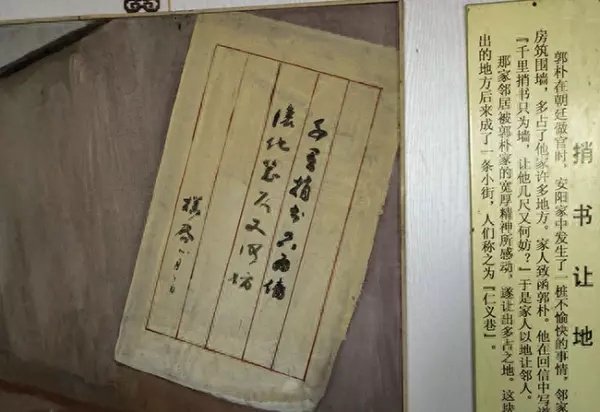 捎书让地
郭朴在朝廷做官时，安阳家中发生了一桩不愉快的事情，邻家
房筑围墙，多占了他家许多地方。家人致函郭朴。他在回信中写道
『千里捎书只为墙，让他几尺又何妨？』于是家人以地让邻人。
那家邻居被郭朴家的宽厚精神所感动，遂让出多占之地。这块
出的地方后来成了一条小街，人们称之为『仁义巷』。
千里捎书只为墙
让他几尺又何妨